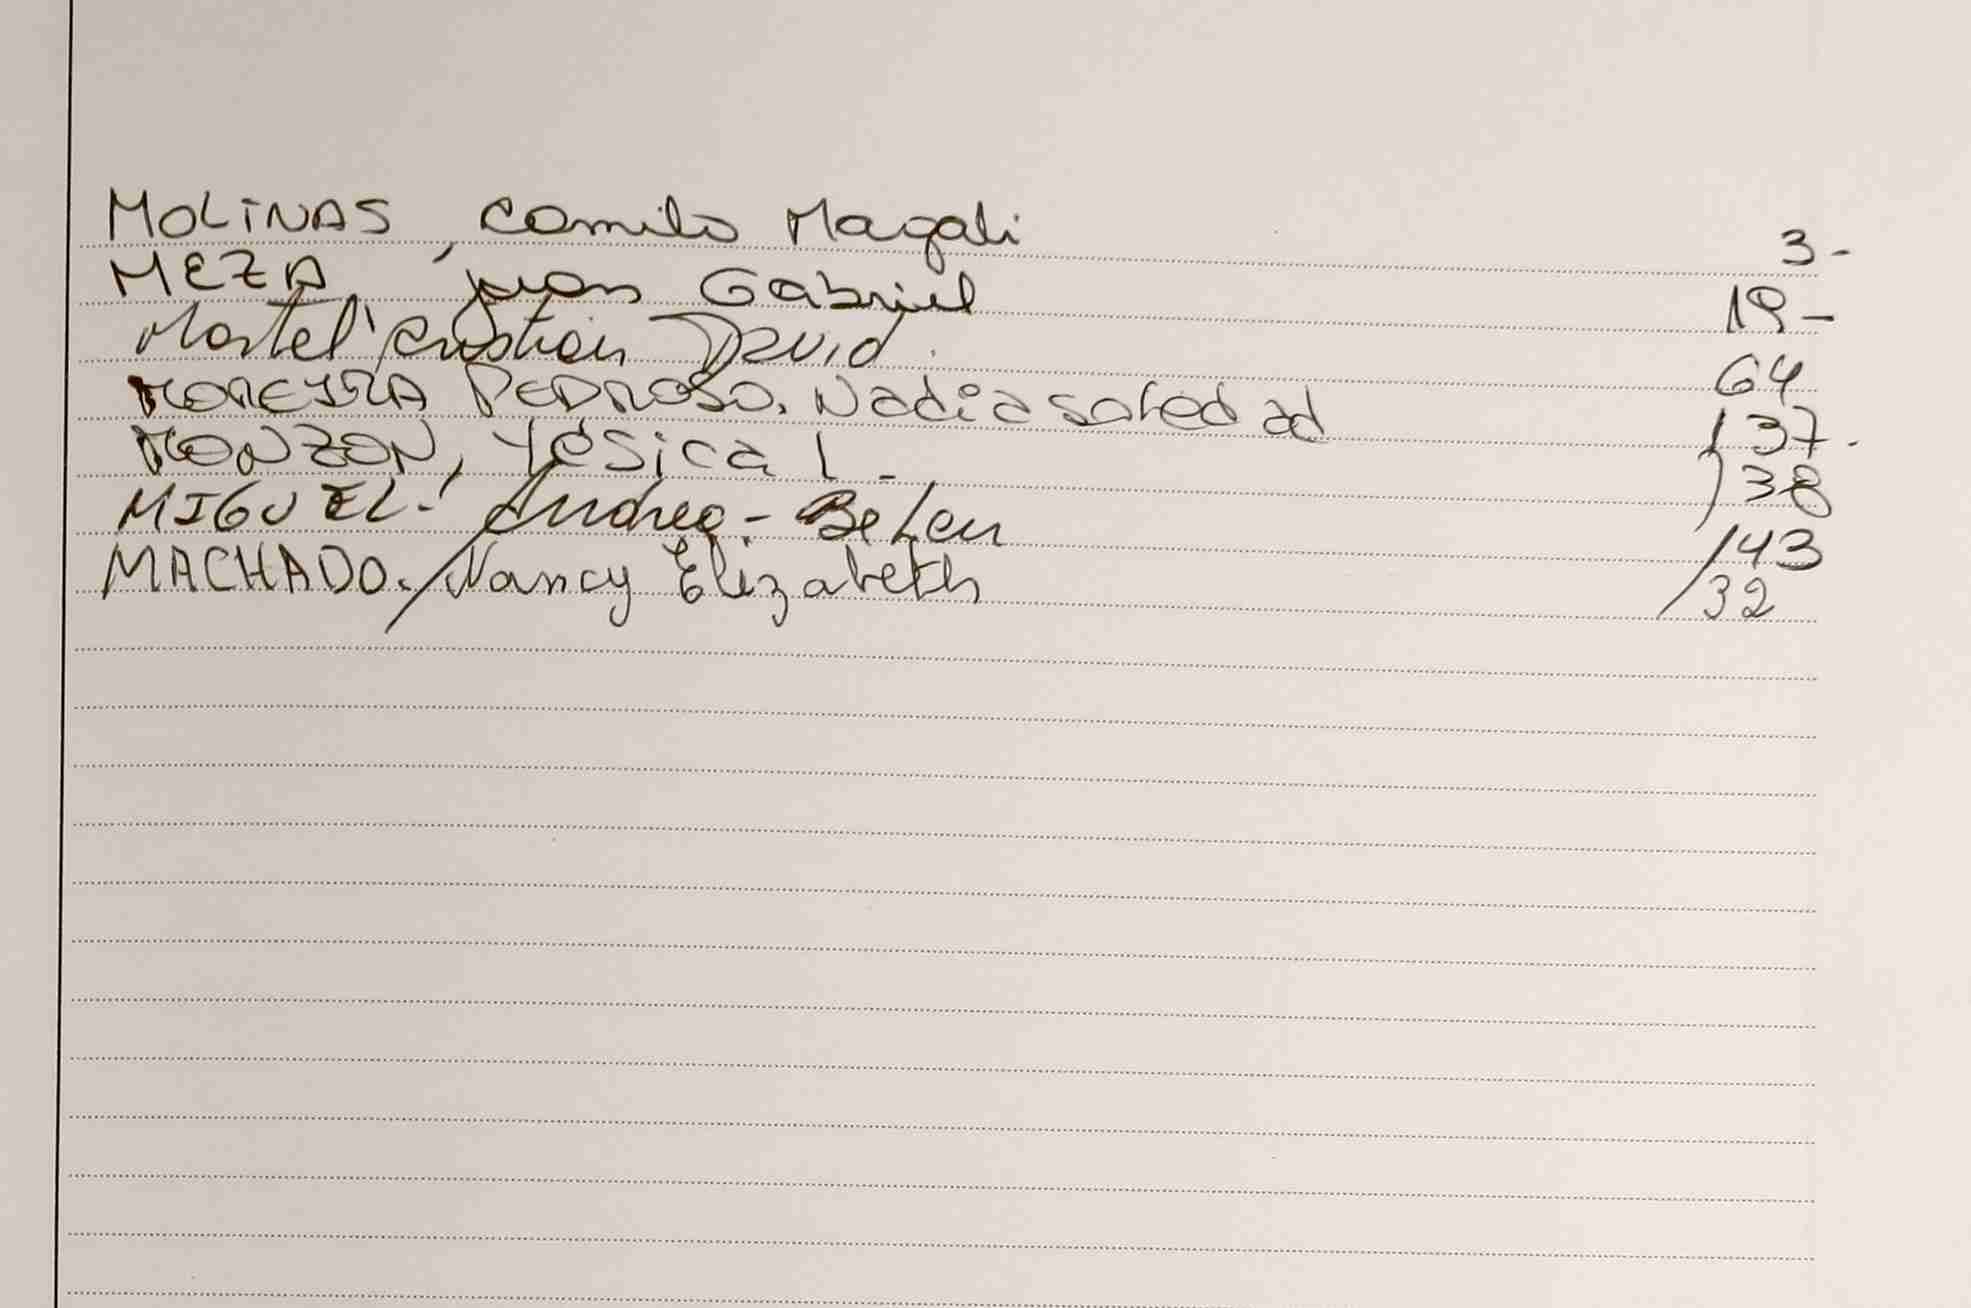 MOLINAS, Camila Magali 3-
MEZA, Juan Gabriel 19-
Martel, Cristian David. 64
MOREIRA PEDROSO. Nadia soledad 137.
MONZON, Yésica L- 138
MIGUEL-! Andrea- Belen 143
MACHADO. Nancy Elizabeth 132